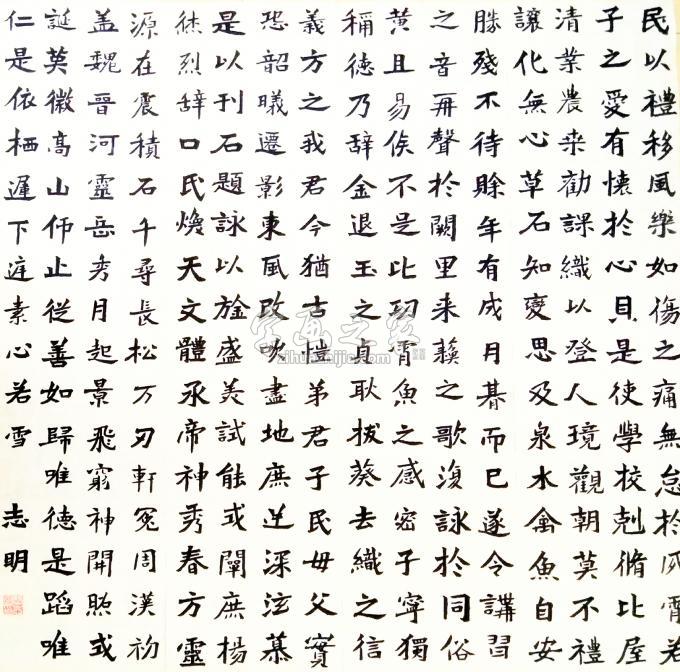 民以禮移風樂如傷之痛無怠於夙宵若
子之愛有懷於心貝是使學校剋脩比屋
清業農桒勸課織以登人境觀朝莫不禮
讓化無心草石知變思及泉水禽魚自安
勝殘不待賖年有成月朞而已遂令講習
之音再聲於闕里来蘓之歌復詠於同俗
黄且易俟不是比功宵魚之感密子寧獨
稱徳乃辞金退玉之貞耿拔葵去織之信
義方之我君今猶古愷弟君子民毋父實
恐韶曦遷影東風改吹盡地庶逆深泫慕
是以刊石題詠以旌盛美試能或闡庶楊
烋烈辞口氏煥天文體承帝神秀春方靈
源在震積石千尋長松万刃軒冤周漢礽
盖魏晉河靈岳秀月起景飛窮神開照或
誕英徽高山仰止從善如歸唯德是蹈唯
仁是依栖遲下庭素心若雪 志明
字画之家
zihuazhijia.com